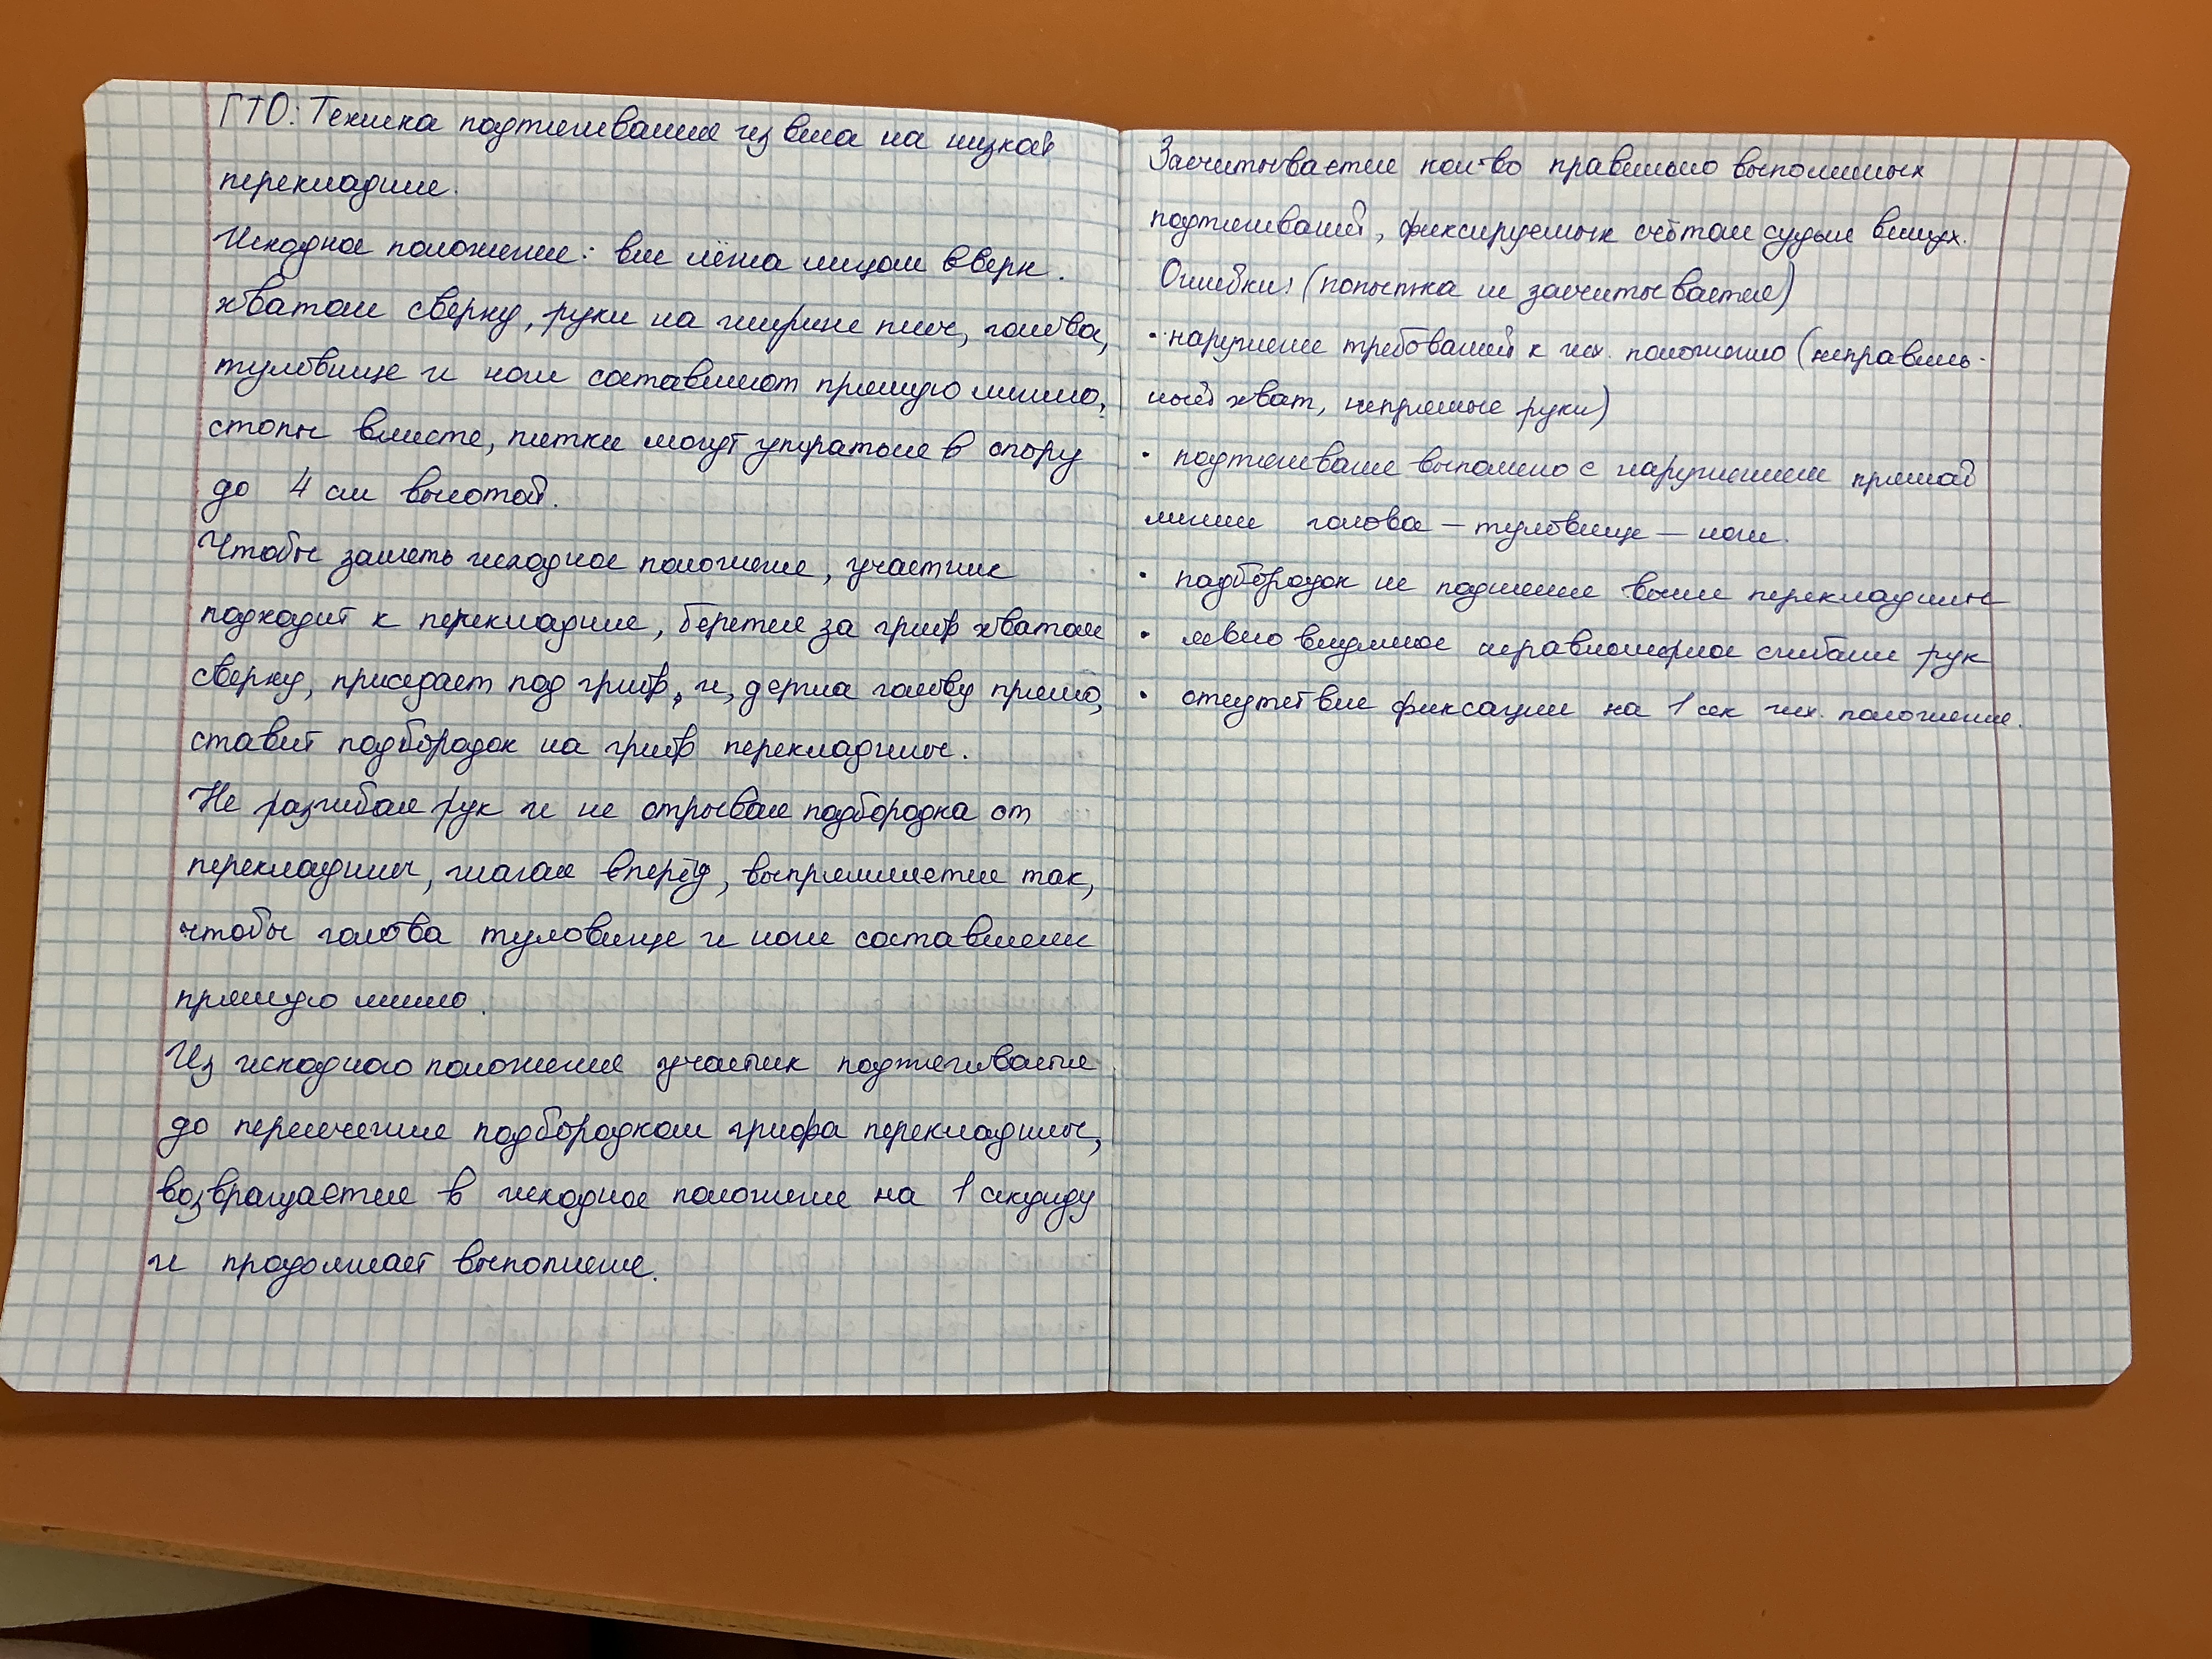 ГТО: Техника подтягивания из виса на низкой
перекладине.
Исходное положение: вис лёжа лицом вверх.
хватом сверху, руки на ширине плеч, голова,
туловище и ноги составляют прямую линию,
стопы вместе, пятки могут упираться в опору
до 4 см высотой.
Чтобы занять исходное положение, участник
подходит к перекладине, берётся за гриф хватом
сверху, приседает под гриф, и, держа голову прямо,
ставит подбородок на гриф перекладины.
Не разгибая рук и не отрывая подбородка от
перекладины, шагая вперёд, выпрямляется так,
чтобы голова туловище и ноги составляли
прямую линию.
Из исходного положения участник подтягивается
до пересечения подбородком грифа перекладины,
возвращается в исходное положение на 1 секунду
и продолжает выполнение.
Засчитывается кол-во правильно выполненных
подтягиваний, фиксируемых счётом судьи вслух.
Ошибки: (попытка не засчитывается)
• нарушение требований к исх. положению (неправиль-
ный хват, непрямые руки)
• подтягивание выполнено с нарушением прямой
линии голова – туловище – ноги.
• подбородок не поднялся выше перекладины
• явно видимое неравномерное сгибание рук
• отсутствие фиксации на 1 сек исх. положения.